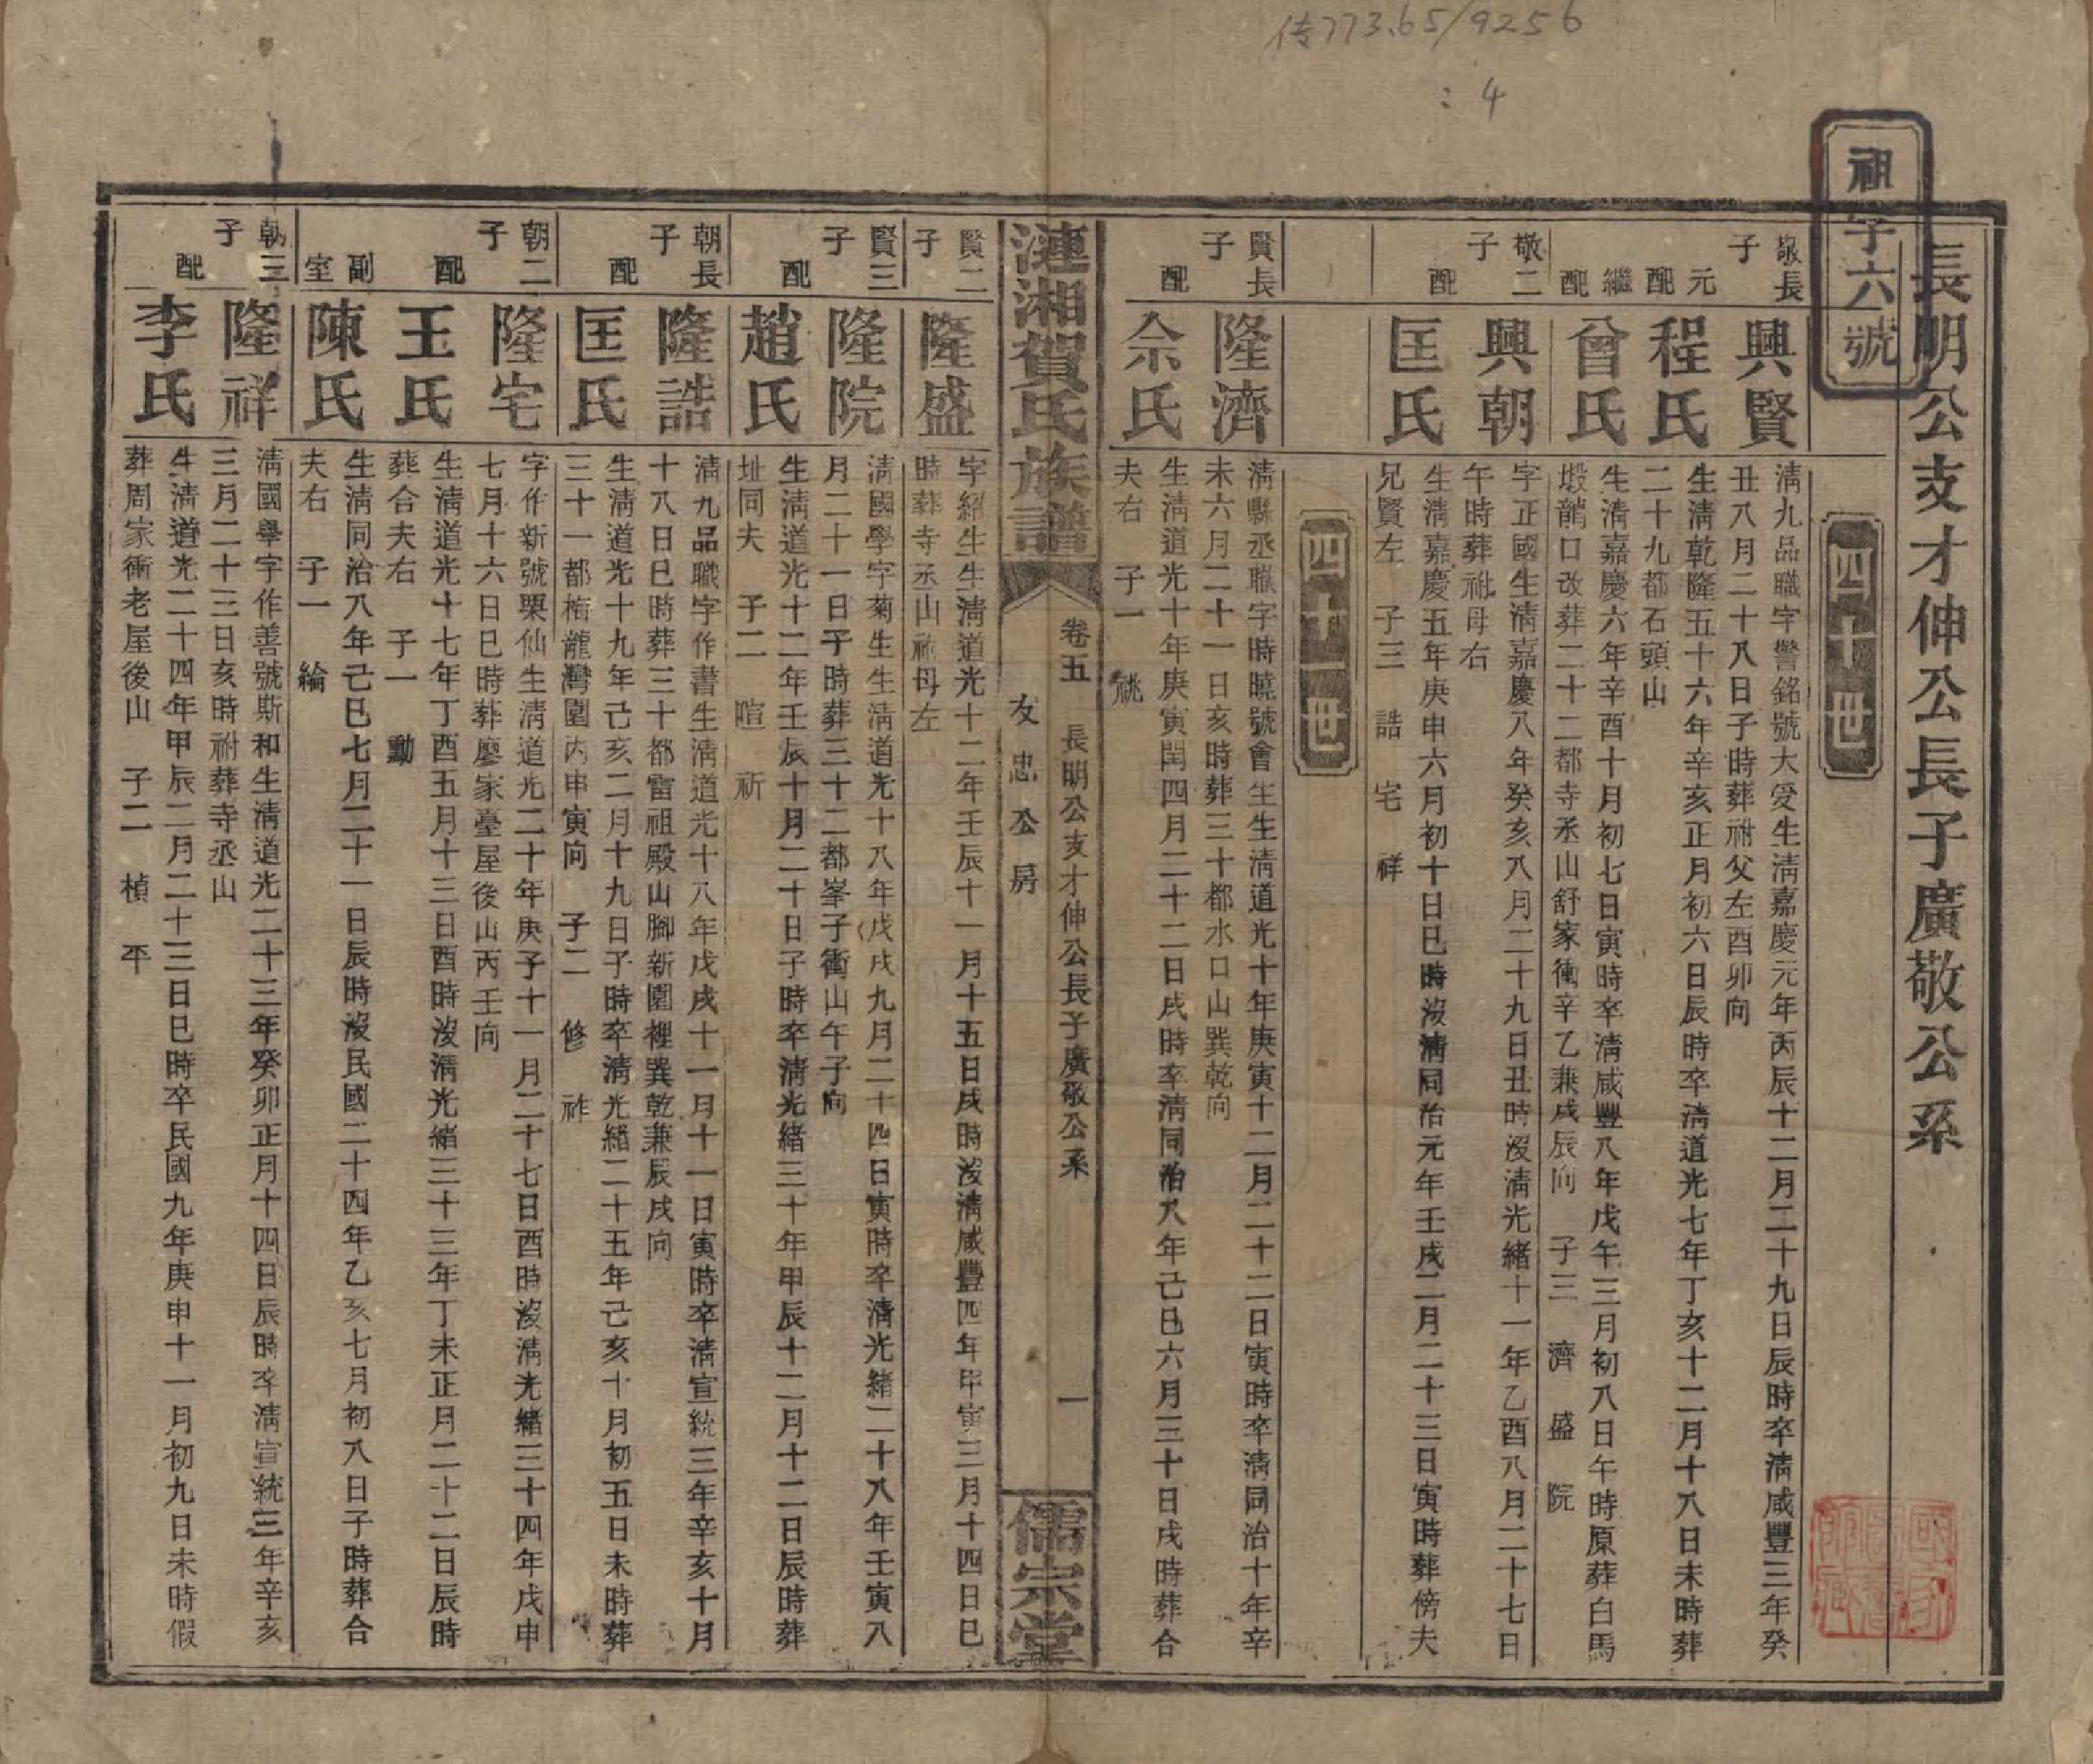 传773.65/9256
:4
祖字六號
長明公支才伸公長子廣敬公系
四十世
敬長子
興賢
清九品職字警銘號大受生清嘉慶元年丙辰十二月二十九日辰時卒清咸豐三年癸
丑八月二十八日子時葬祔父左酉卯向
元配
程氏
生清乾隆五十六年辛亥正月初六日辰時卒清道光七年丁亥十二月十八日未時葬
二十九都石頭山
繼配
曾氏
生清嘉慶六年辛酉十月初七日寅時卒清咸豐八年戊午三月初八日午時原葬白馬
塅龍口改葬二十二都寺丞山舒家衝辛乙兼戌辰向 子三 濟 盛 院
敬二子
興朝
字正國生清嘉慶八年癸亥八月二十九日丑時沒清光緒十一年乙酉八月二十七日
午時葬祔母右
配
匡氏
生清嘉慶五年庚申六月初十日巳時沒清同治元年壬戌二月二十三日寅時葬傍夫
兄賢左 子三 誥 宅 祥
四十一世
賢長子
隆濟
清縣丞職字時曉號會生生清道光十年庚寅十二月二十二日寅時卒清同治十年辛
未六月二十一日亥時葬三十都水口山巽乾向
配
佘氏
生清道光十年庚寅閏四月二十二日戌時卒清同治八年己巳六月三十日戌時葬合
夫右 子一 祧
漣湘賀氏族譜
卷五 長明公支才伸公長子廣敬公系 一
友忠公房
儒宗堂
賢二子
隆盛
字紹生生清道光十二年壬辰十一月十五日戌時沒清咸豐四年甲寅三月十四日巳
時葬寺丞山祔母左
賢三子
隆院
清國學字菊生生清道光十八年戊戌九月二十四日寅時卒清光緒二十八年壬寅八
月二十一日子時葬三十二都峯子衝山午子向
配
趙氏
生清道光十二年壬辰十月二十日子時卒清光緒三十年甲辰十二月十二日辰時葬
址同夫 子二 喧 祈
朝長子
隆誥
清九品職字作書生清道光十八年戊戌十一月十一日寅時卒清宣統三年辛亥十月
十八日巳時葬三十都雷祖殿山腳新園裡巽乾兼辰戌向
配
匡氏
生清道光十九年己亥二月十九日子時卒清光緒二十五年己亥十月初五日未時葬
三十一都梅龍灣園內申寅向 子二 修 祚
朝二子
隆宅
字作新號栗仙生清道光二十年庚子十一月二十七日酉時沒清光緒三十四年戊申
七月十六日巳時葬廖家臺屋後山丙壬向
配
王氏
生清道光十七年丁酉五月十三日酉時沒清光緒三十三年丁未正月二十二日辰時
葬合夫右 子一 勳
副室
陳氏
生清同治八年己巳七月二十一日辰時沒民國二十四年乙亥七月初八日子時葬合
夫右 子一 綸
朝三子
隆祥
清國學字作善號斯和生清道光二十三年癸卯正月十四日辰時卒清宣統三年辛亥
三月二十三日亥時祔葬寺丞山
配
李氏
生清道光二十四年甲辰二月二十三日巳時卒民國九年庚申十一月初九日未時假
葬周家衝老屋後山 子二 楨 平